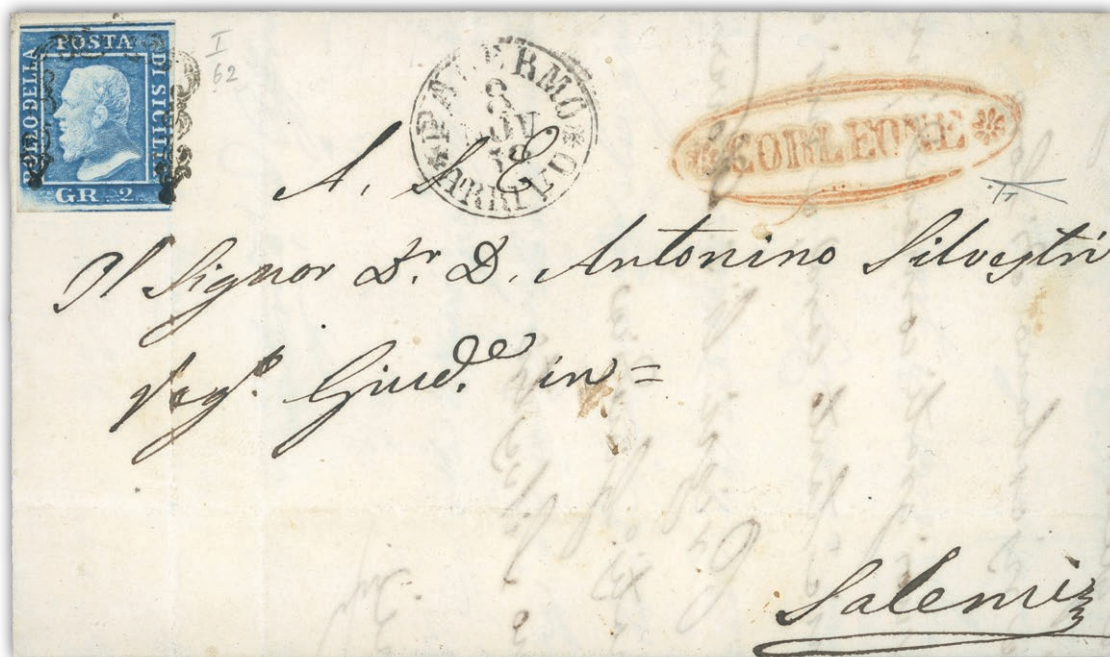 POSTA
BOLLO DELLA
DI SICILIA
GR. 2.
I
62
PALERMO
8
ARRIVO
CORLEONE
A. S. E.
Il Signor Dr. D. Antonino Silvestri
Giud.e in =
Salemi